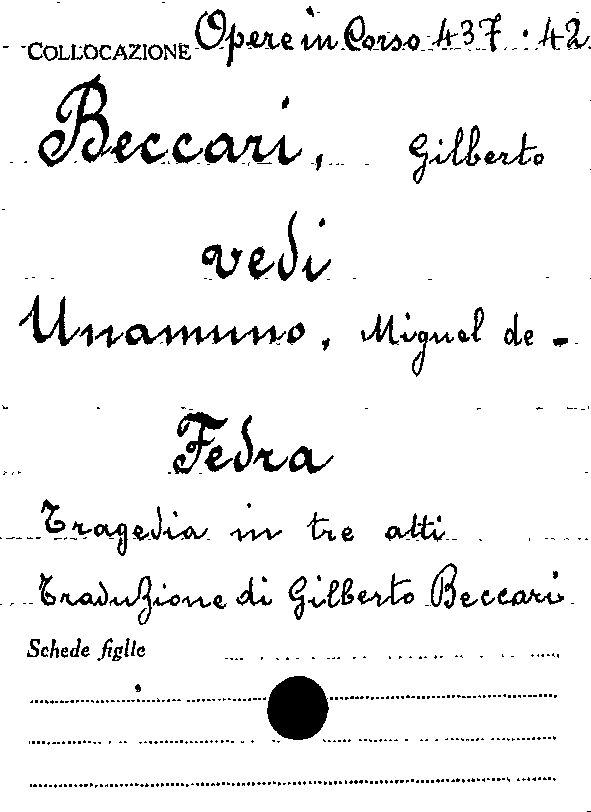 COLLOCAZIONE Opere in Corso 437 · 42
Beccari, Gilberto
vedi
Unamuno, Miguel de -
Fedra
Tragedia in tre atti
Traduzione di Gilberto Beccari
Schede figlie